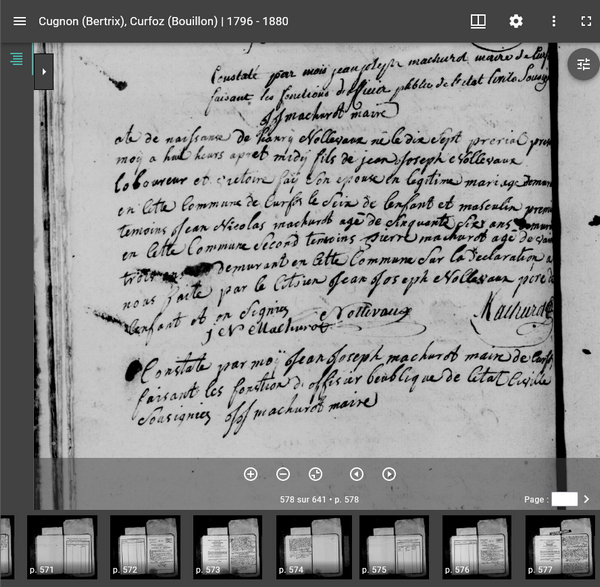 Cugnon (Bertrix), Curfoz (Bouillon) | 1796 - 1880
Constaté par moi jean joseph machurot maire de Curf
faisant les fonctions d'officier public de l'etat civile Sousig
JJ machurot maire
ate de naissance de hanry Nollevaux né le dix sept prerial
moy a huit heurs apret midy fils de jean Joseph Nollevaux
laboureur et victoire faÿ Son epouse en legitime mariage
en cette Commune de Curfos le Seix de Lenfant et masculin prem
temoins Jean Nicolas machurot agé de Cinquante Six ans
en cette Commune Second temoins pierre machurot agé de
trois demurant en cette Commune Sur la Declaration a
nous faite par le Citoien Jean Joseph Nollevaux pere d
Lenfant et on Signies
J N Machurot Nollevaux Machurot
Constate par moÿ Jean Joseph machurot maire de Curf
faisant les fonction d offisier beublique de Letat Civille
Sousignies JJ machurot maire
578 sur 641 • p. 578
Page :
p. 571
p. 572
p. 573
p. 574
p. 575
p. 576
p. 577